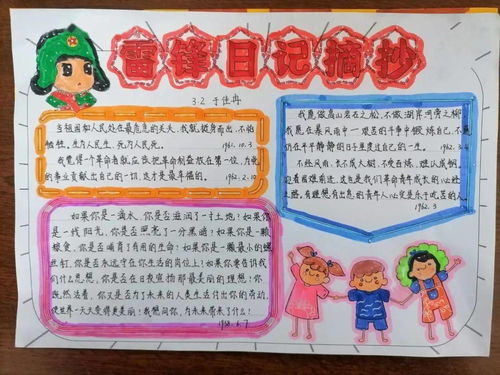 雷锋日记摘抄
3.2 于佳冉
当祖国和人民处在最危急的关头，我就挺身而出，不怕
牺牲。生为人民生，死为人民死。
1961.10.3
我觉得一个革命者就应该把革命利益放在第一位，为党
的事业贡献出自己的一切，这才是最幸福的。
1962.2.10
我愿做高山岩石之松，不做湖岸河旁之柳
我愿在暴风雨中一艰苦的斗争中锻炼自己，不愿
在平平静静的日子里度过自己的一生。
不经风雨，长不成大树，不受百炼，难以成钢。
迎着困难前进，这也是我们革命青年成长的必经之
路。有理想有出息的青年人必定是乐于吃苦的人。
1962.3
如果你是一滴水，你是否滋润了一寸土地？如果你
是一线阳光，你是否照亮了一分黑暗？如果你是一颗
粮食，你是否哺育了有用的生命？如果你是一颗最小的螺
丝钉，你是否永远守在你生活的岗位上？如果你要告诉我
们什么思想，你是否在日夜宣扬那最美丽的理想？你
既然活着，你又是否为了未来的人类生活付出你的劳动，
使世界一天天变得更美丽？我想问你，为未来带来了什么？
1958.6.7